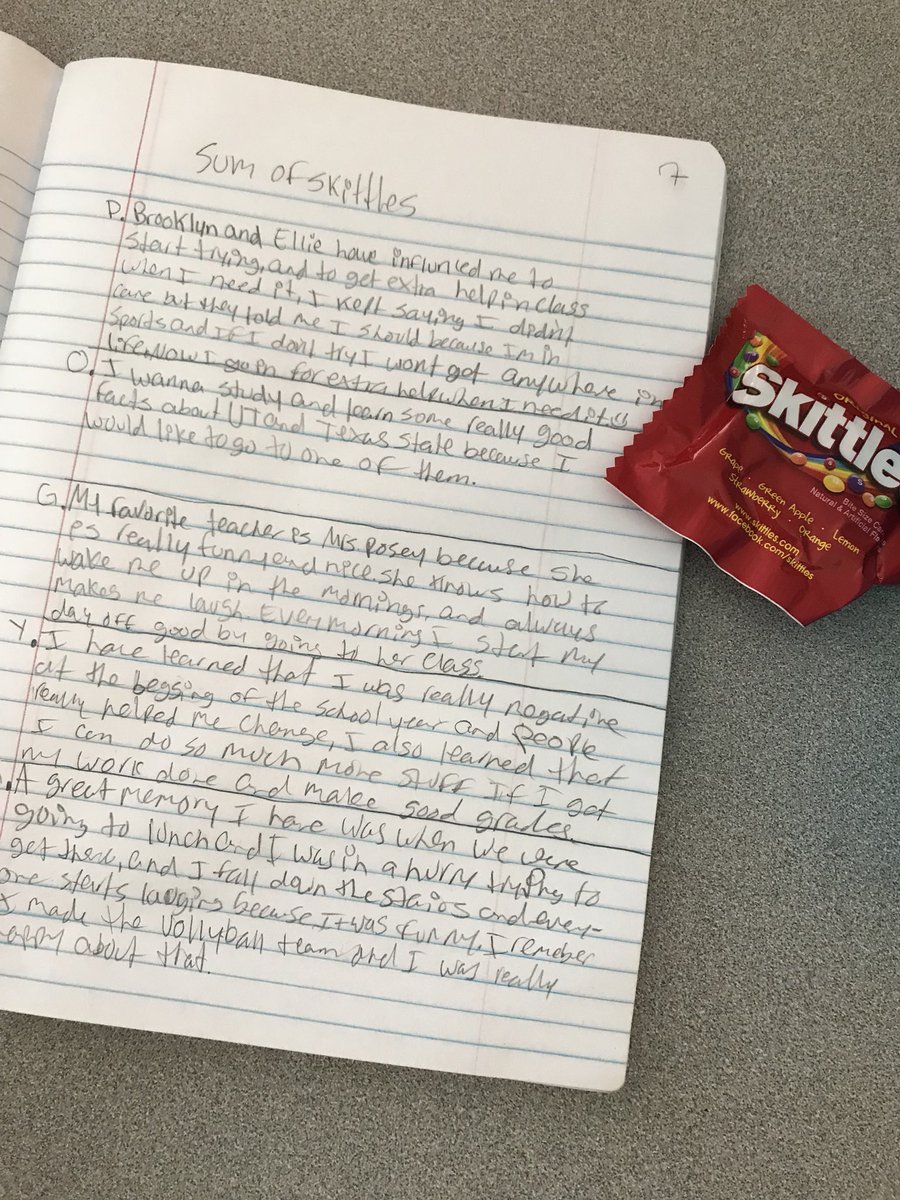 Sum of Skittles
7
P. Brooklyn and Ellie have influnced me to
start trying, and to get extra help in class
when I need it, I kept saying I didn't
care but they told me I should because Im in
sports and if I don't try I wont get anywhere in
life. Now I go in for extra help when I need it
O. I wanna study and learn some really good
facts about UT and Texas State because I
would like to go to one of them.
G. My favorite teacher is Mrs. Posey because she
is really funny and nice. she knows how to
wake me up in the mornings, and always
makes me laugh. Every morning I start my
day off good by going to her class.
Y. I have learned that I was really nogative
at the begsing of the school year and people
really helped me change, I also learned that
I can do so much more stuff if I get
my work done and make good grades
. A great memory I have was when we were
going to lunch and I was in a hurry trying to
get there, and I fall down the stairs and every-
one starts laughing because it was funny. I remeber
I made the vollyball team and I was really
happy about that.
ORIGINAL
Skittle
Grape Green Apple Lemon
Strawberry Orange
Bite Size Ca
Natural & Artificial Fla
www.skittles.com
www.facebook.com/skittles